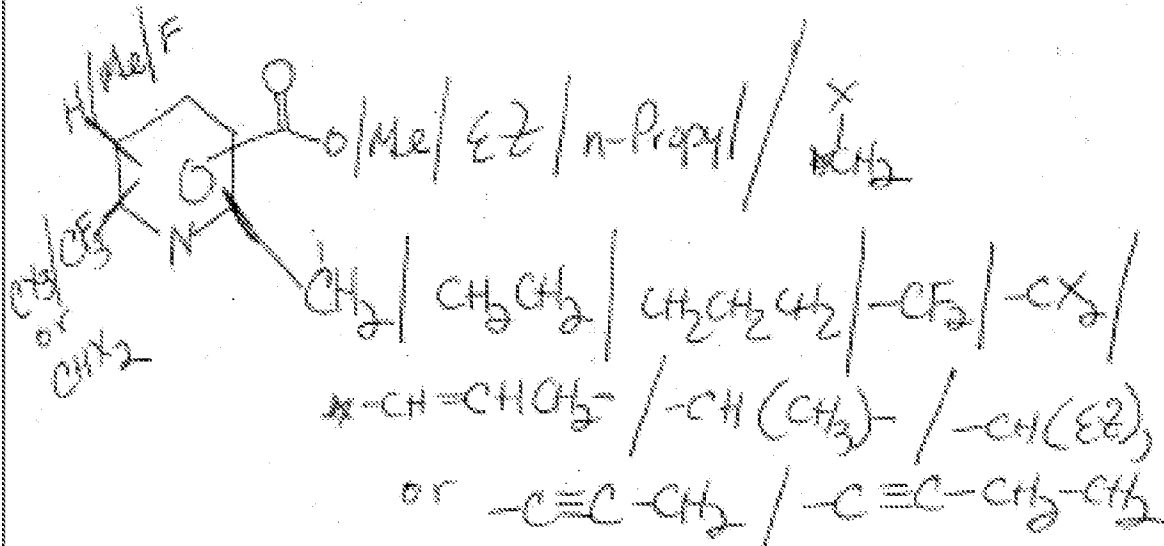 H/Me/F
O
O/Me/Et/n-Propyl/
X
CH₂
O
CH₃/CF₃
N
or
CHX₂
CH₂/CH₂CH₂/CH₂CH₂CH₂/-CF₂/-CX₂/
-CH=CHCH₂-/-CH(CH₃)-/-CH(Et),
or -C≡C-CH₂/-C≡C-CH₂-CH₂